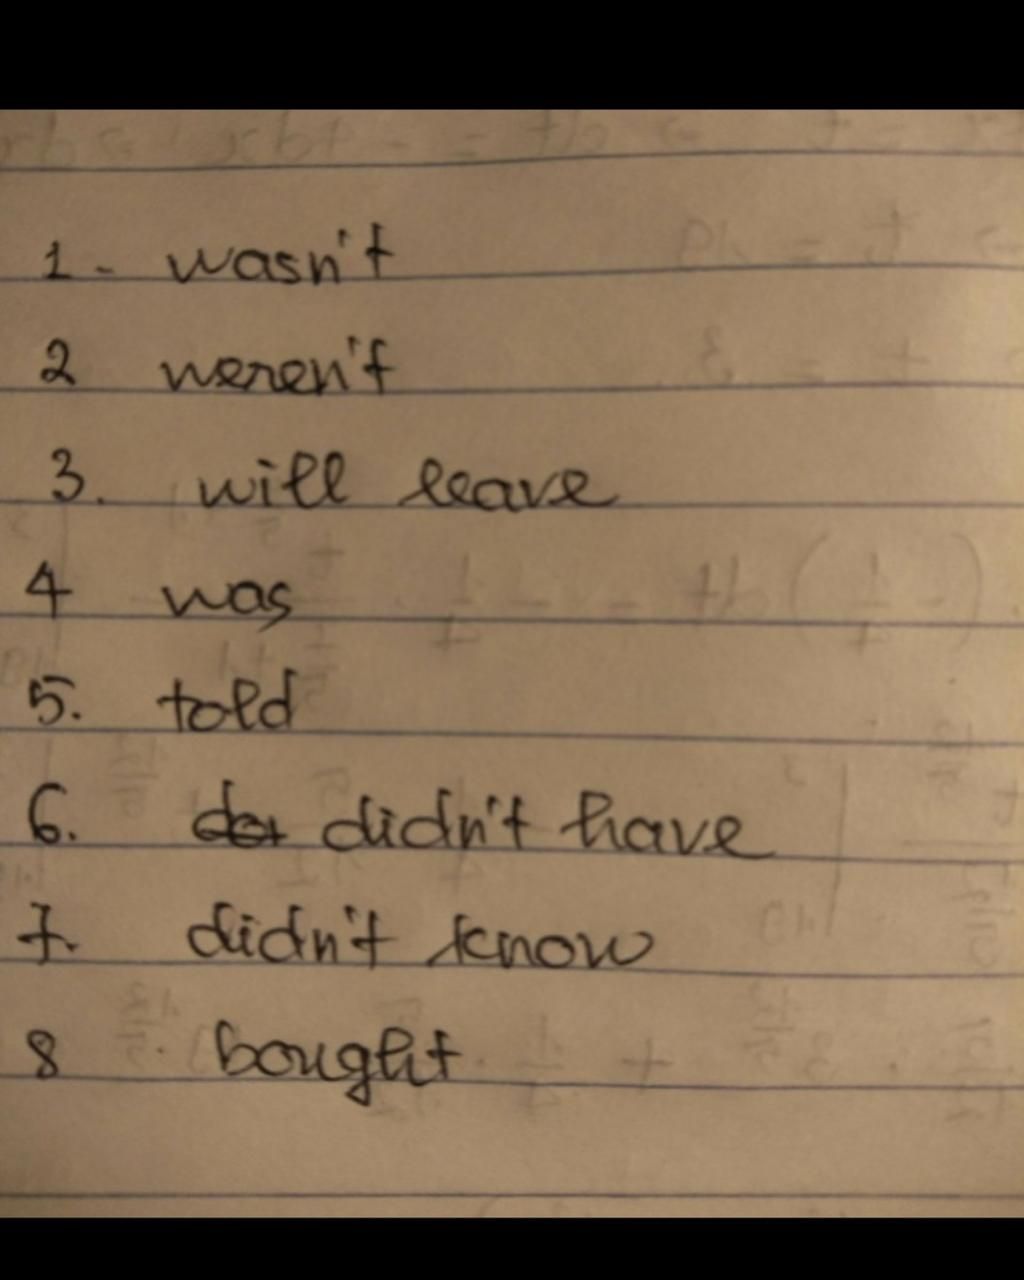 1- wasn't
2 weren't
3. will leave
4 was
5. told
6. didn't have
7. didn't know
8 bought